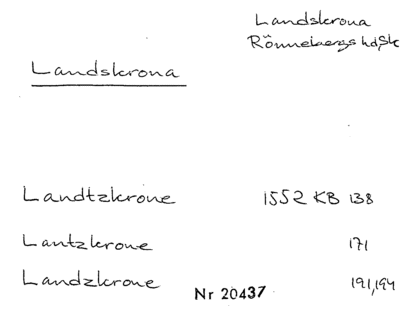 Landskrona
Rönnebergs hd, Sk
Landskrona
Landtzkrone 1552 KB 138
Lantzkrone 171
Landzkrone 191,194
Nr 20437